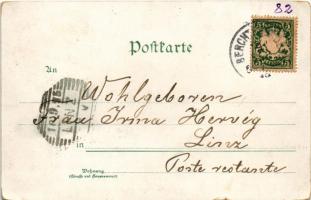 82
Postkarte
BERCH
An
Wohlgeboren
Frau Irma Hervég
in Linz
Wohnung
(Straße und Hausnummer)
Poste restante